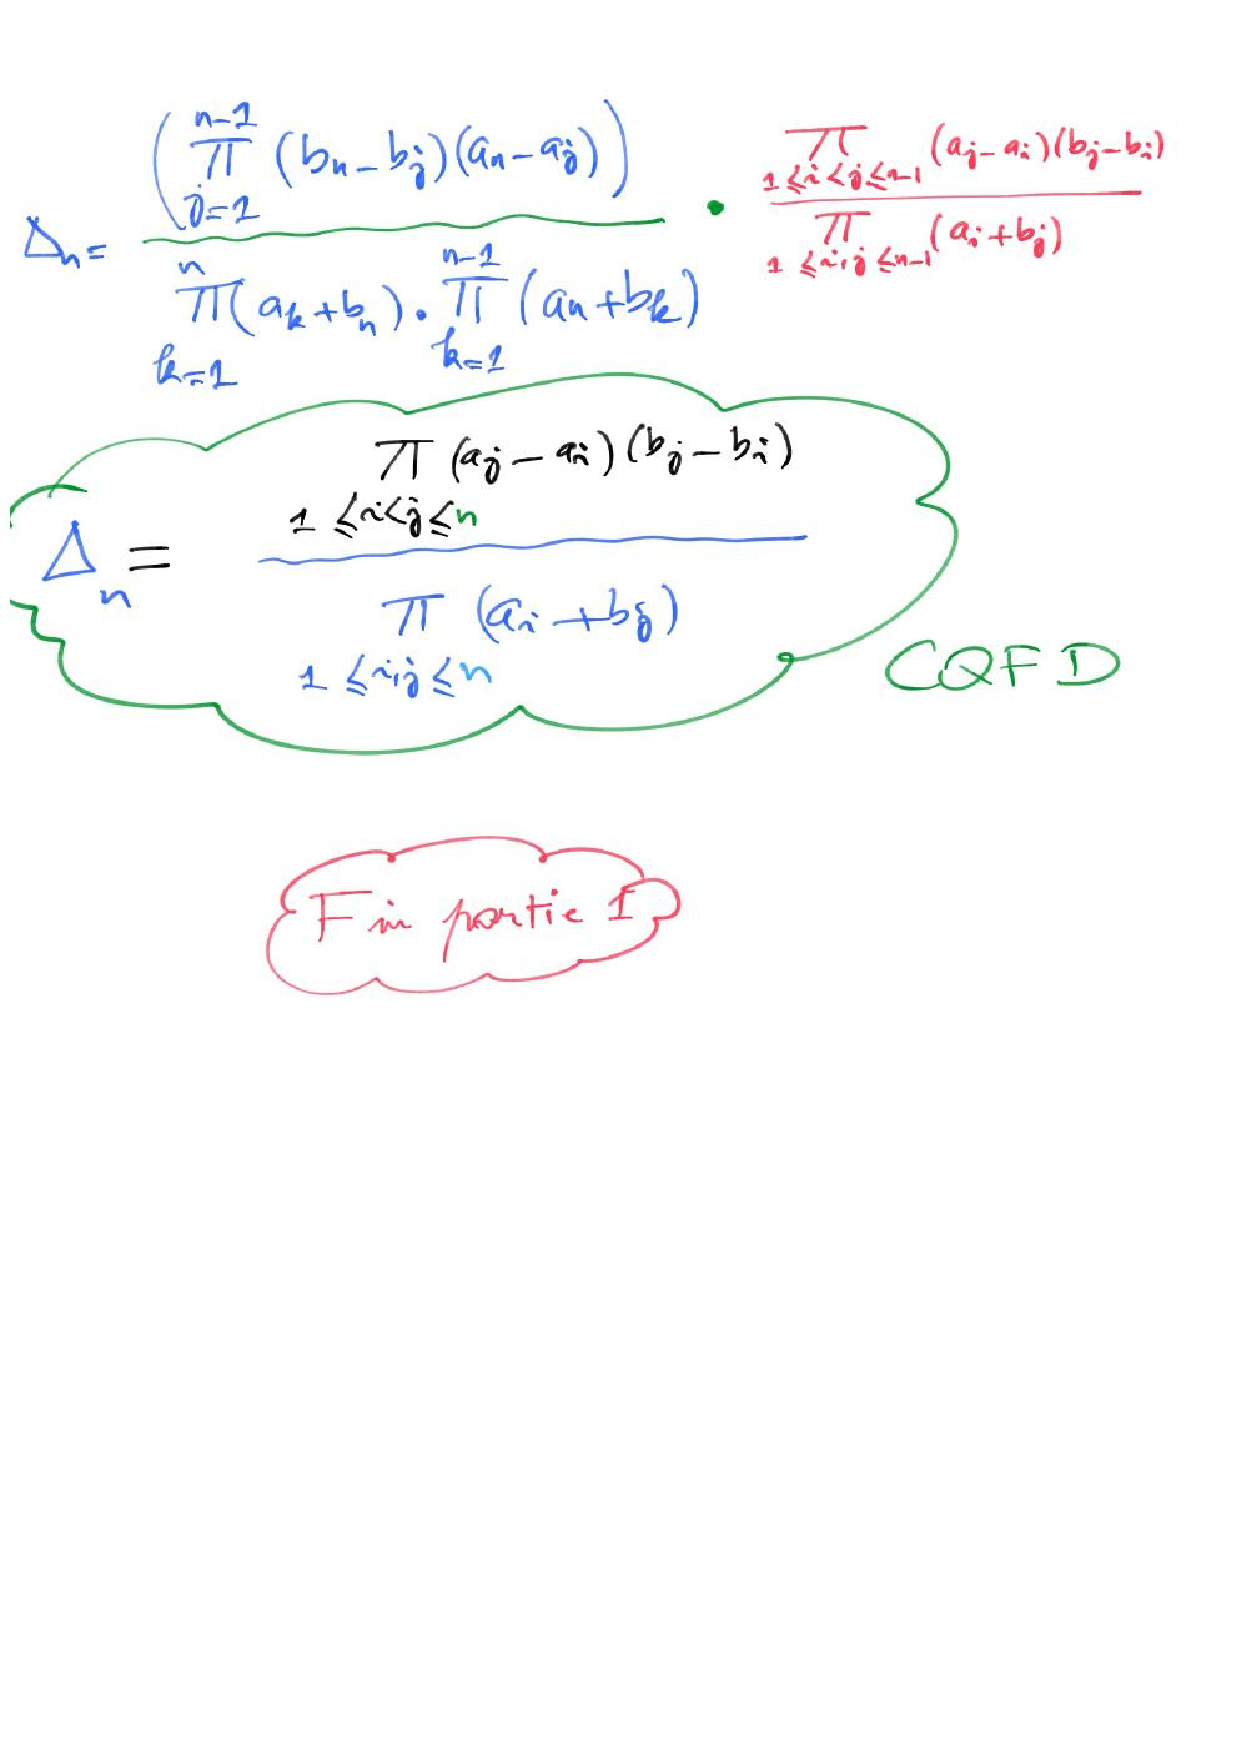 Δ_n = \frac{\left(\prod_{j=1}^{n-1}(b_n - b_j)(a_n - a_j)\right)}{\prod_{k=1}^{n}(a_k + b_n) \cdot \prod_{k=1}^{n-1}(a_n + b_k)} \cdot \frac{\prod_{1≤i<j≤n-1}(a_j - a_i)(b_j - b_i)}{\prod_{1≤i,j≤n-1}(a_i + b_j)}
Δ_n = \frac{\prod_{1≤i<j≤n}(a_j - a_i)(b_j - b_i)}{\prod_{1≤i,j≤n}(a_i + b_j)}
CQFD
Fin partie I